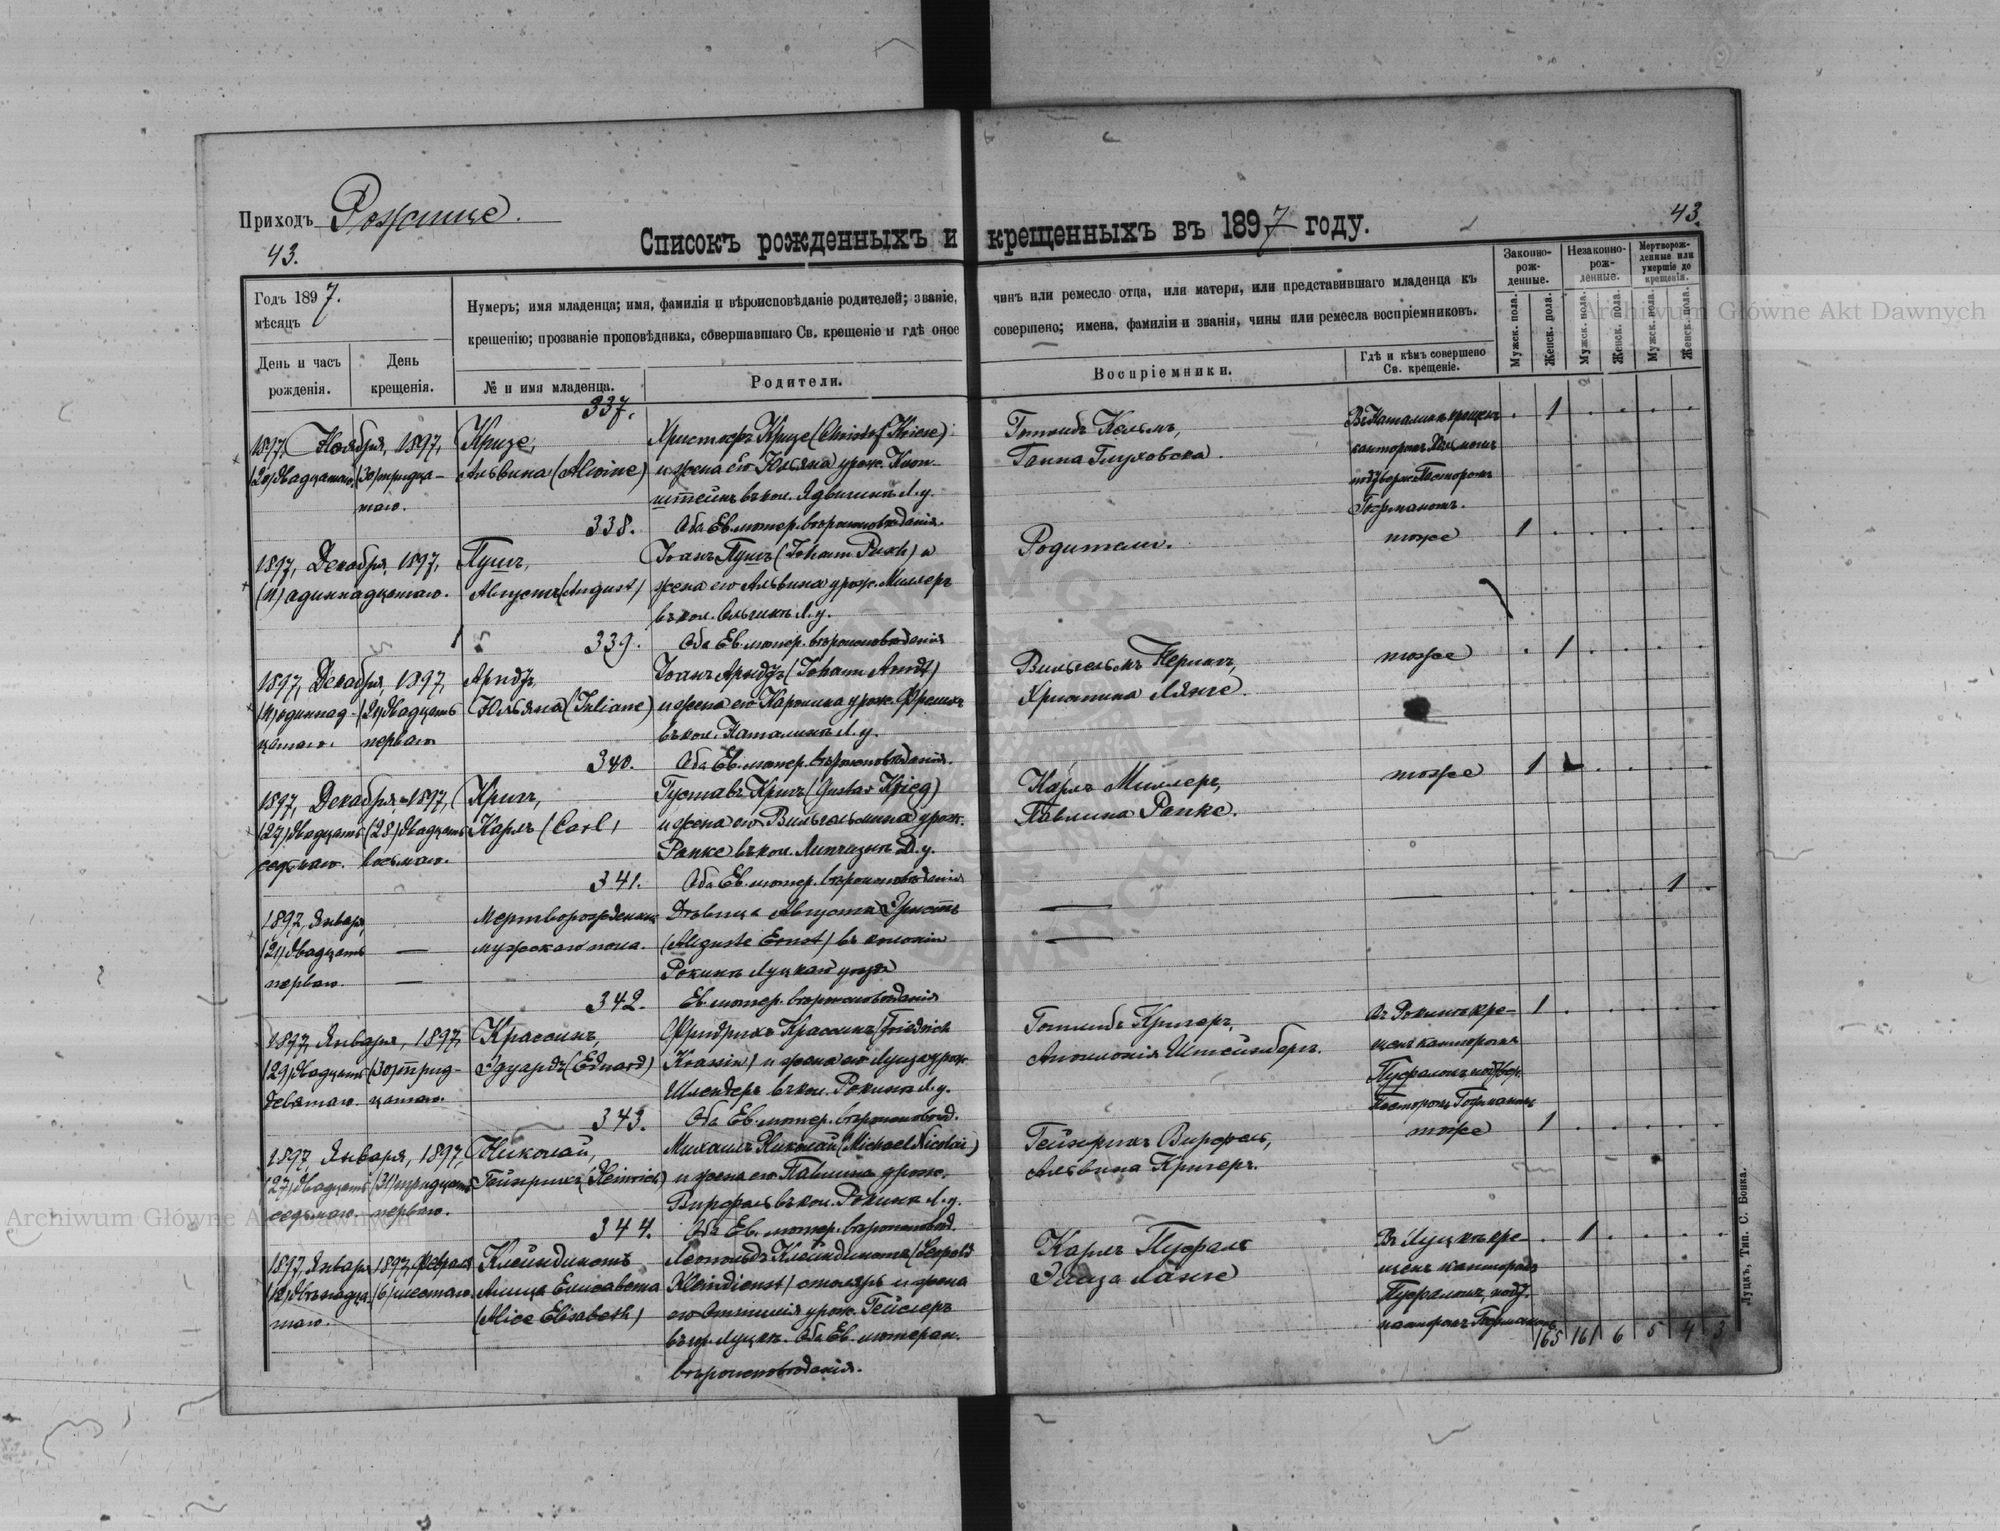 Приходъ Рожище.
43.
43.
Списокъ рожденныхъ и крещенныхъ въ 1897 году.
Годъ 1897.
мѣсяцъ
День и часъ рожденія.
День крещенія.
Нумеръ; имя младенца; имя, фамилія и вѣроисповѣданіе родителей; званіе, чинъ или ремесло отца, или матери, или представившаго младенца къ
крещенію; прозваніе проповѣдника, совершавшаго Св. крещеніе и гдѣ оное совершено; имена, фамиліи и званія, чины или ремесла воспріемниковъ.
№ и имя младенца.
Родители.
Воспріемники.
Гдѣ и кѣмъ совершено Св. крещеніе.
Законно-рож-денные.
Незаконно-рож-денные.
Мертворож-денные или умершіе до крещенія.
Мужск. пола.
Женск. пола.
Мужск. пола.
Женск. пола.
Мужск. пола.
Женск. пола.
337.
1897, Ноября, 1897,
(20) двадцатаго, (30) тридца-
таго.
Кризе,
Альвина (Alvine)
Христофъ Кризе (Christof Kriese)
и жена его Юльяна урож. Кло-
въ кол. Л. у.
Оба Ев. лютер. вѣроисповѣданія.
Готлибъ Кельмъ,
Ганна Глуховска.
канторомъ
Пасторомъ
Германомъ.
1
338.
1897, Декабря, 1897,
(11) одиннадцатаго.
Пушъ,
Августъ (August)
Іоанъ Пушъ (Johann Push) и
жена его Альвина урож. Миллеръ
въ кол. Ольгинъ Л. у.
Оба Ев. лютер. вѣроисповѣданія
Родители.
тоже
1
339.
1897, Декабря, 1897,
(11) одиннад- (21) двадцать
цатаго. перваго
Арндъ,
Юльяна (Juliane)
Іоанъ Арндъ (Johann Arndt)
и жена его Каролина урож.
въ кол. Л. у.
Оба Ев. лютер. вѣроисповѣданія.
Вильгельмъ
Христина Лянге
тоже
1
340.
1897, Декабря 1897,
(27) двадцать (28) двадцать
седьмаго. восьмаго.
Кригъ,
Карлъ (Carl)
Густавъ Кригъ (Gustav Krieg)
и жена его Вильгельмина урож.
Рапке въ кол. Д. у.
Оба Ев. лютер. вѣроисповѣданія
Карлъ Миллеръ,
Павлина Рапке.
тоже
1
341.
1897, Января,
(21) двадцать
перваго.
Мертворожденный
мужскаго пола.
Дѣвица Августа Эрнстъ
(Auguste Ernst) въ колоніи
Рокинъ Луцкаго уѣзда
Ев. лютер. вѣроисповѣданія
1
342.
1897, Января, 1897
(29) двадцать (30) трид-
девятаго. цатаго.
Крассинъ,
Эдуардъ (Eduard)
Фридрихъ Крассинъ (Friedrich
Krassin) и жена его Луиза урож.
въ кол. Рокинъ Л. у.
Оба Ев. лютер. вѣроисповѣд.
Готлибъ Кригеръ,
Аполонія Штейнбергъ.
Въ Рокинъ кре-
щенъ канторомъ
Пуфаломъ, подтвер.
Пасторомъ Германомъ
1
343.
1897 Января, 1897,
(27) двадцать (31) тридцать
седьмаго. перваго.
Николай,
Гейнрихъ (Heinrich)
Михаилъ Николай (Michael Nicolai)
и жена его Павлина урож.
въ кол. Рокинъ Л. у.
Оба Ев. лютер. вѣроисповѣд.
Гейнрихъ
Альвина Кригеръ.
тоже
1
344.
1897, Января 1897, Февраля
(12) двѣнадца- (6) шестаго.
таго.
Клейндинстъ
Алица Елисавета
(Alice Elisabeth)
Леопольдъ Клейндинстъ (Leopold
Kleindienst) столяръ и жена
его Оттилія урож. Гейслеръ
въ гор. Луцкъ. Оба Ев. лютеран.
вѣроисповѣданія.
Карлъ Пуфаль
Элиза Ланге
Въ Луцкѣ кре-
щенъ канторомъ
Пуфаломъ, подт.
пасторомъ Германомъ
1
165 161 6 5 4 3
Луцкъ, Тип. С. Бонка.
Archiwum Główne Akt Dawnych
Archiwum Główne Akt Dawnych